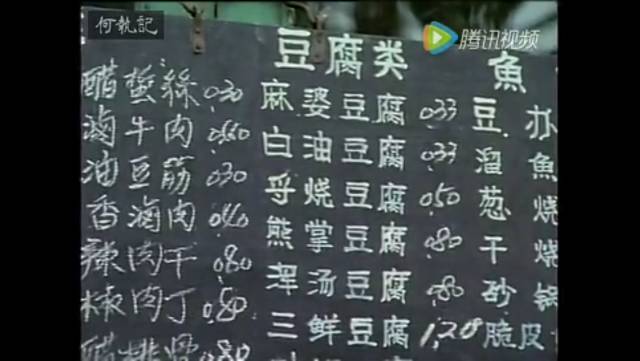 何執記
腾讯视频
醋蜇絲 0.30
滷牛肉
油豆筋 0.30
香滷肉 0.40
辣肉干 0.80
椒肉丁 0.80
醋排骨 0.80
豆腐类
麻婆豆腐 0.33
白油豆腐 0.33
乎烧豆腐 0.50
熊掌豆腐 0.80
浑汤豆腐 0.80
三鲜豆腐 1.20
魚
豆办
溜魚
葱烧
干烧
砂锅
脆皮